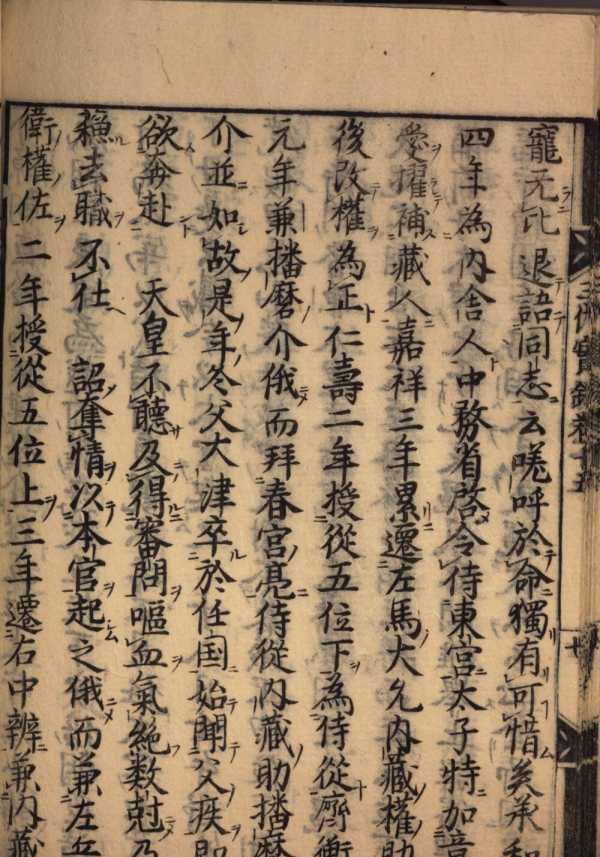 寵无比退語同志云嗟呼於命獨有可惜矣承和
四年為内舎人中務省啓令侍東宮太子特加
愛擢補藏人嘉祥三年累遷左馬大允内藏權助
後改權為正仁壽二年授從五位下為侍從齊衡
元年兼播磨介俄而拜春宮亮侍從内藏助播麻
介並如故是年冬父大津卒於任国始聞父疾即
欲奔赴 天皇不聽及得審問嘔血氣絶数尅乃
穌去職不仕 詔奪情以本官起之俄而兼左兵
衛權佐二年授從五位上三年遷右中辨兼内藏
三代實錄卷十五